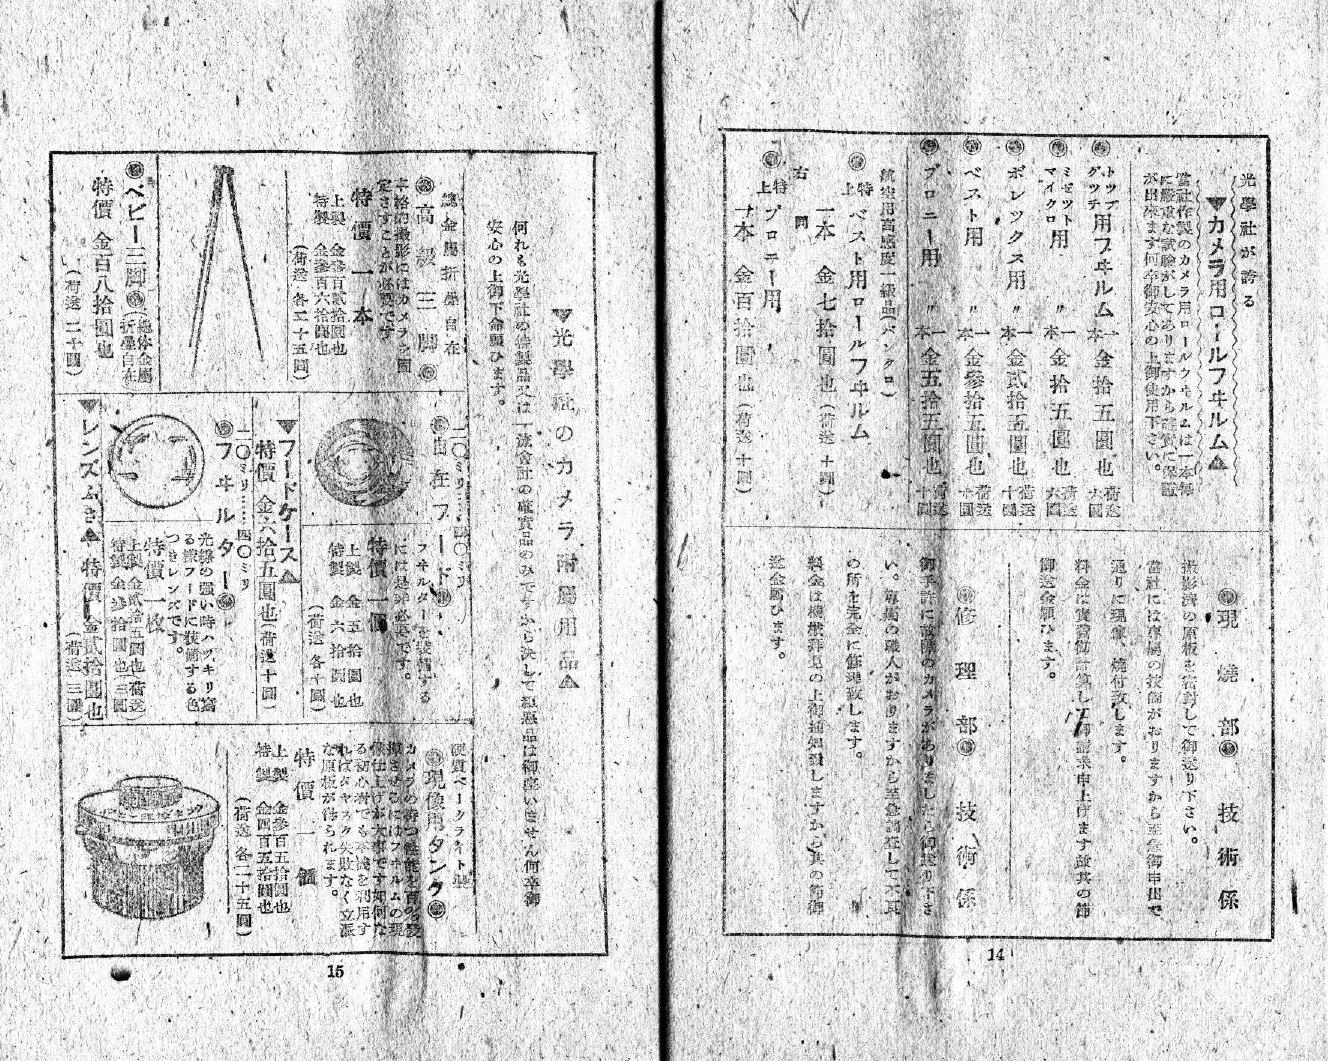 光學社が誇る
▼カメラ用ロールフヰルム▲
當社作製のカメラ用ロールフヰルムは一本每
に嚴重な試驗がしてありますから確實に保證
が出來ます何卒御安心の上御使用下さい。
トツプ グツチ 用フヰルム 一本 金拾五圓也 荷送六圓
ミゼツト マイクロ 用 〃 一本 金拾五圓也 荷送六圓
ボレツクス用 〃 一本 金貳拾五圓也 荷送十圓
ベスト用 〃 一本 金參拾五圓也 荷送十圓
ブロニー用 〃 一本 金五拾五圓也 荷送十圓
航空用高感度一級品(パンクロ)
特上 ベスト用ロールフヰルム
一本 金七拾圓也(荷送十圓)
右同
特上 ブロニー用
一本 金百拾圓也(荷送十圓)
現燒部 技術係
撮影濟の原板を密封して御送り下さい。
當社には專屬の技師がおりますから至急御申出で
通りに現像、燒付致します。
料金は實費御計算して御請求申上げます故其の節
御送金願ひます。
修理部 技術係
御手許に故障のカメラがありましたら御送り下さ
い。專屬の職人がおりますから至急調整して不良
の所を完全に修理致します。
料金は機械拜見の上御通知致しますから其の節御
送金願ひます。
14
▼光學社のカメラ附屬用品▲
何れも光學社の特製品又は一流會社の確實品のみですから決して粗惡品は御座いません何卒御
安心の上御下命願ひます。
總金屬折疊自在
高級三脚
本格的撮影にはカメラを固
定さすことが必要です
特價一本
上製 金參百貳拾圓也
特製 金參百六拾圓也
(荷送各二十五圓)
ベビー三脚(總体金屬折疊自在)
特價 金百八拾圓也
(荷送二十圓)
二〇ミリ……四〇ミリ
自在フード
フヰルターを裝備する
には是非必要です。
特價一個
上製 金五拾圓也
特製 金六拾圓也
(荷送各十圓)
▼フードケース▲
特價 金六拾五圓也(荷送十圓)
二〇ミリ……四〇ミリ
フヰルター
光線の强い時ハツキリ寫
る樣フードに裝備する色
つきレンズです。
特價一枚
上製 金貳拾五圓也(荷送
特製 金參拾圓也 三圓)
▼レンズふき▲ 特價 金貳拾圓也
(荷送三圓)
硬質ベークライト製
現像用タンク
カメラの持つ性能を百%發
揮させるにはフヰルムの現
像仕上げが大事です如何な
る初心者でも本機を利用す
ればタヤスク失敗なく立派
な原板が得られます。
特價一個
上製 金參百五十圓也
特製 金四百五拾圓也
(荷送各二十五圓)
15